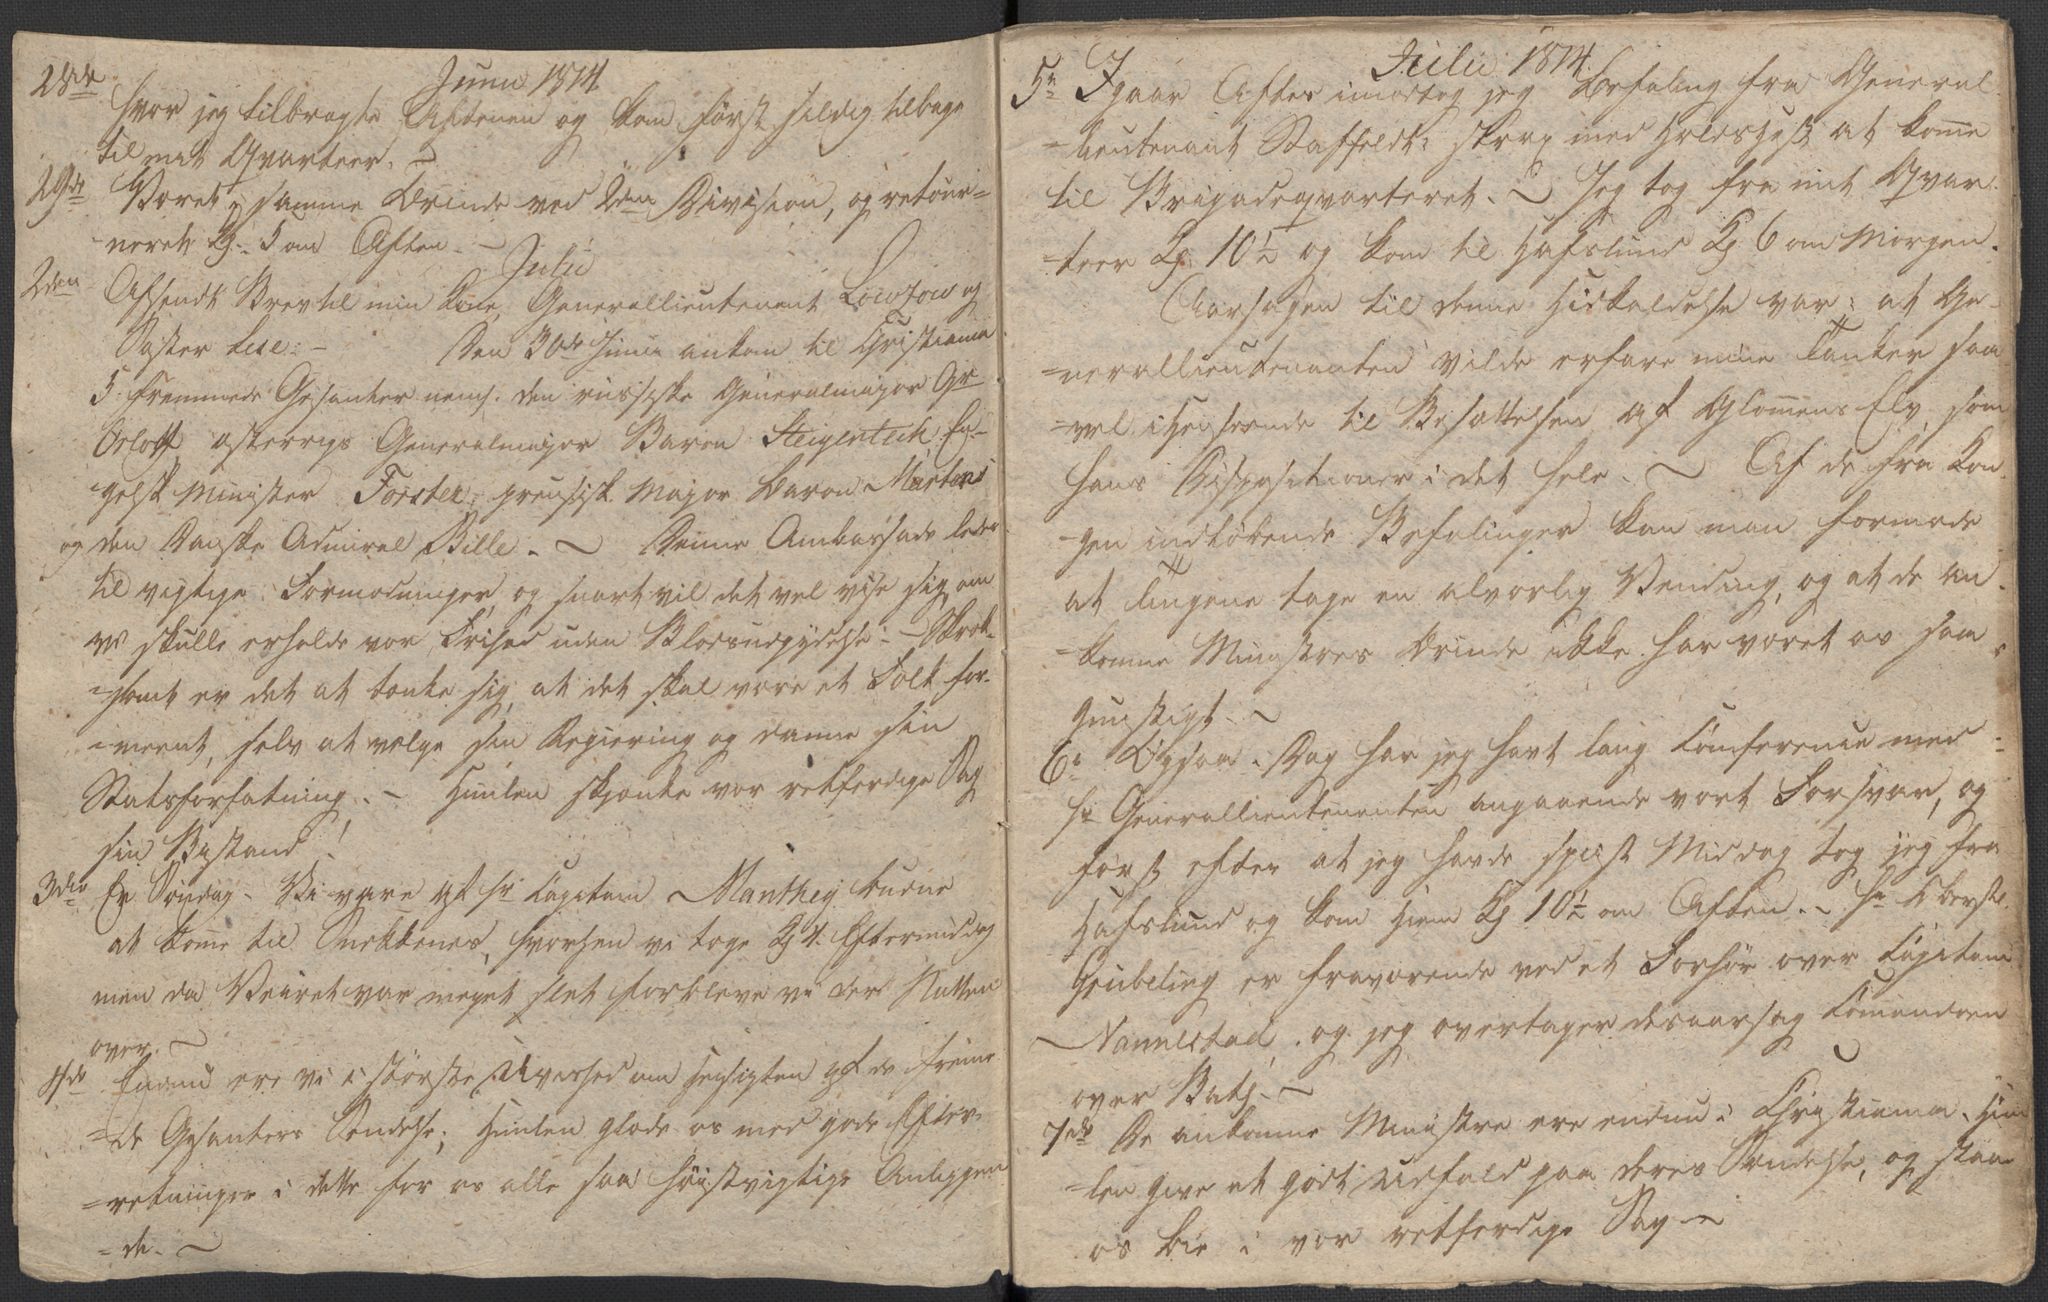 Junii 1814
28de hvor jeg tilbragte Aftenen og kom først sildig tilbage
til mit Qvarteer. –
29de Været i samme Ærende ved 2den Division, og retour-
=neret Kl. 5 om Aften. –
Julii
2den Afsendt Brev til min Kone, Generallieutenant Lowzow og
Søster Lise. – Den 30de Junii ankom til Christiania
5 fremmede Gesanter neml. den russiske Generalmajor Gr
Orloff, østerrigs Generalmajor Baron Steigentech, En-
gelsk Minister Forster, preusisk Major Baron Martens
og den Danske Admiral Bille. – Denne Ambassade leder
til vigtige Formodninger, og snart vil det vel vise sig, om
vi skulle erholde vor Frihed uden Blodsudgydelse. – Skræk-
=somt er det at tænke sig, at det skal være et Folk for-
=meent, selv at vælge sin Regiering og danne sin
Statsforfatning. – Himlen skjænke vor retfærdige Sag
sin Bistand!
3die En Søndag. Vi vare af Hr Capitain Manthey budne
at komme til Snekkenes, hvorhen vi toge Kl 4 Eftermiddag
men da Veiret var meget slet forbleve vi der Natten
over. –
4de Endnu ere vi i største Uvished om Hensigten af de fremme
=de Gesanters Sendelse; Himlen glæde os med gode Efter-
=retninger i dette for os alle saa høistvigtige Anliggen
=de. –
Julii 1814.
5te Igaar Aftes imodtog jeg Befaling fra General
=lieutenant Staffeldt: strax med Holdshest at komme
til Brigadeqvarteret. – Jeg tog fra mit Qvar-
=teer Kl. 10½ og kom til Hafslund Kl 6 om Morgen.
Aarsagen til denne Hidkaldelse var: at Ge-
=nerallieutenanten vilde erfare mine Tanker saa
=vel i Henseende til Besættelsen af Glomens Elv, som
hans Dispositioner i det hele. – Af de fra Kon
=gen indløbende Befalinger kan man formode
at tingene tage en alvorlig Vending, og at de an-
=komne Ministres Ærinde ikke har været os saa
gunstigt. –
6te Ogsaa i Dag har jeg havt lang Conference med
Hr Generallieutenanten angaaende vort Forsvar, og
først efter at jeg havde spiist Middag tog jeg fra
Hafslund og kom hiem Kl 10½ om Aften. – Hr Oberstl.
Grubeling er fraværende ved et Forhør over Capitain
Nannestad, og jeg overtager desaarsag Comandoen
over Batl. –
7de De ankomne Ministre ere endnu i Christiania. Him
=len give et godt Udfald paa deres Sendelse, og staae
os bie i vor retfærdige Sag –